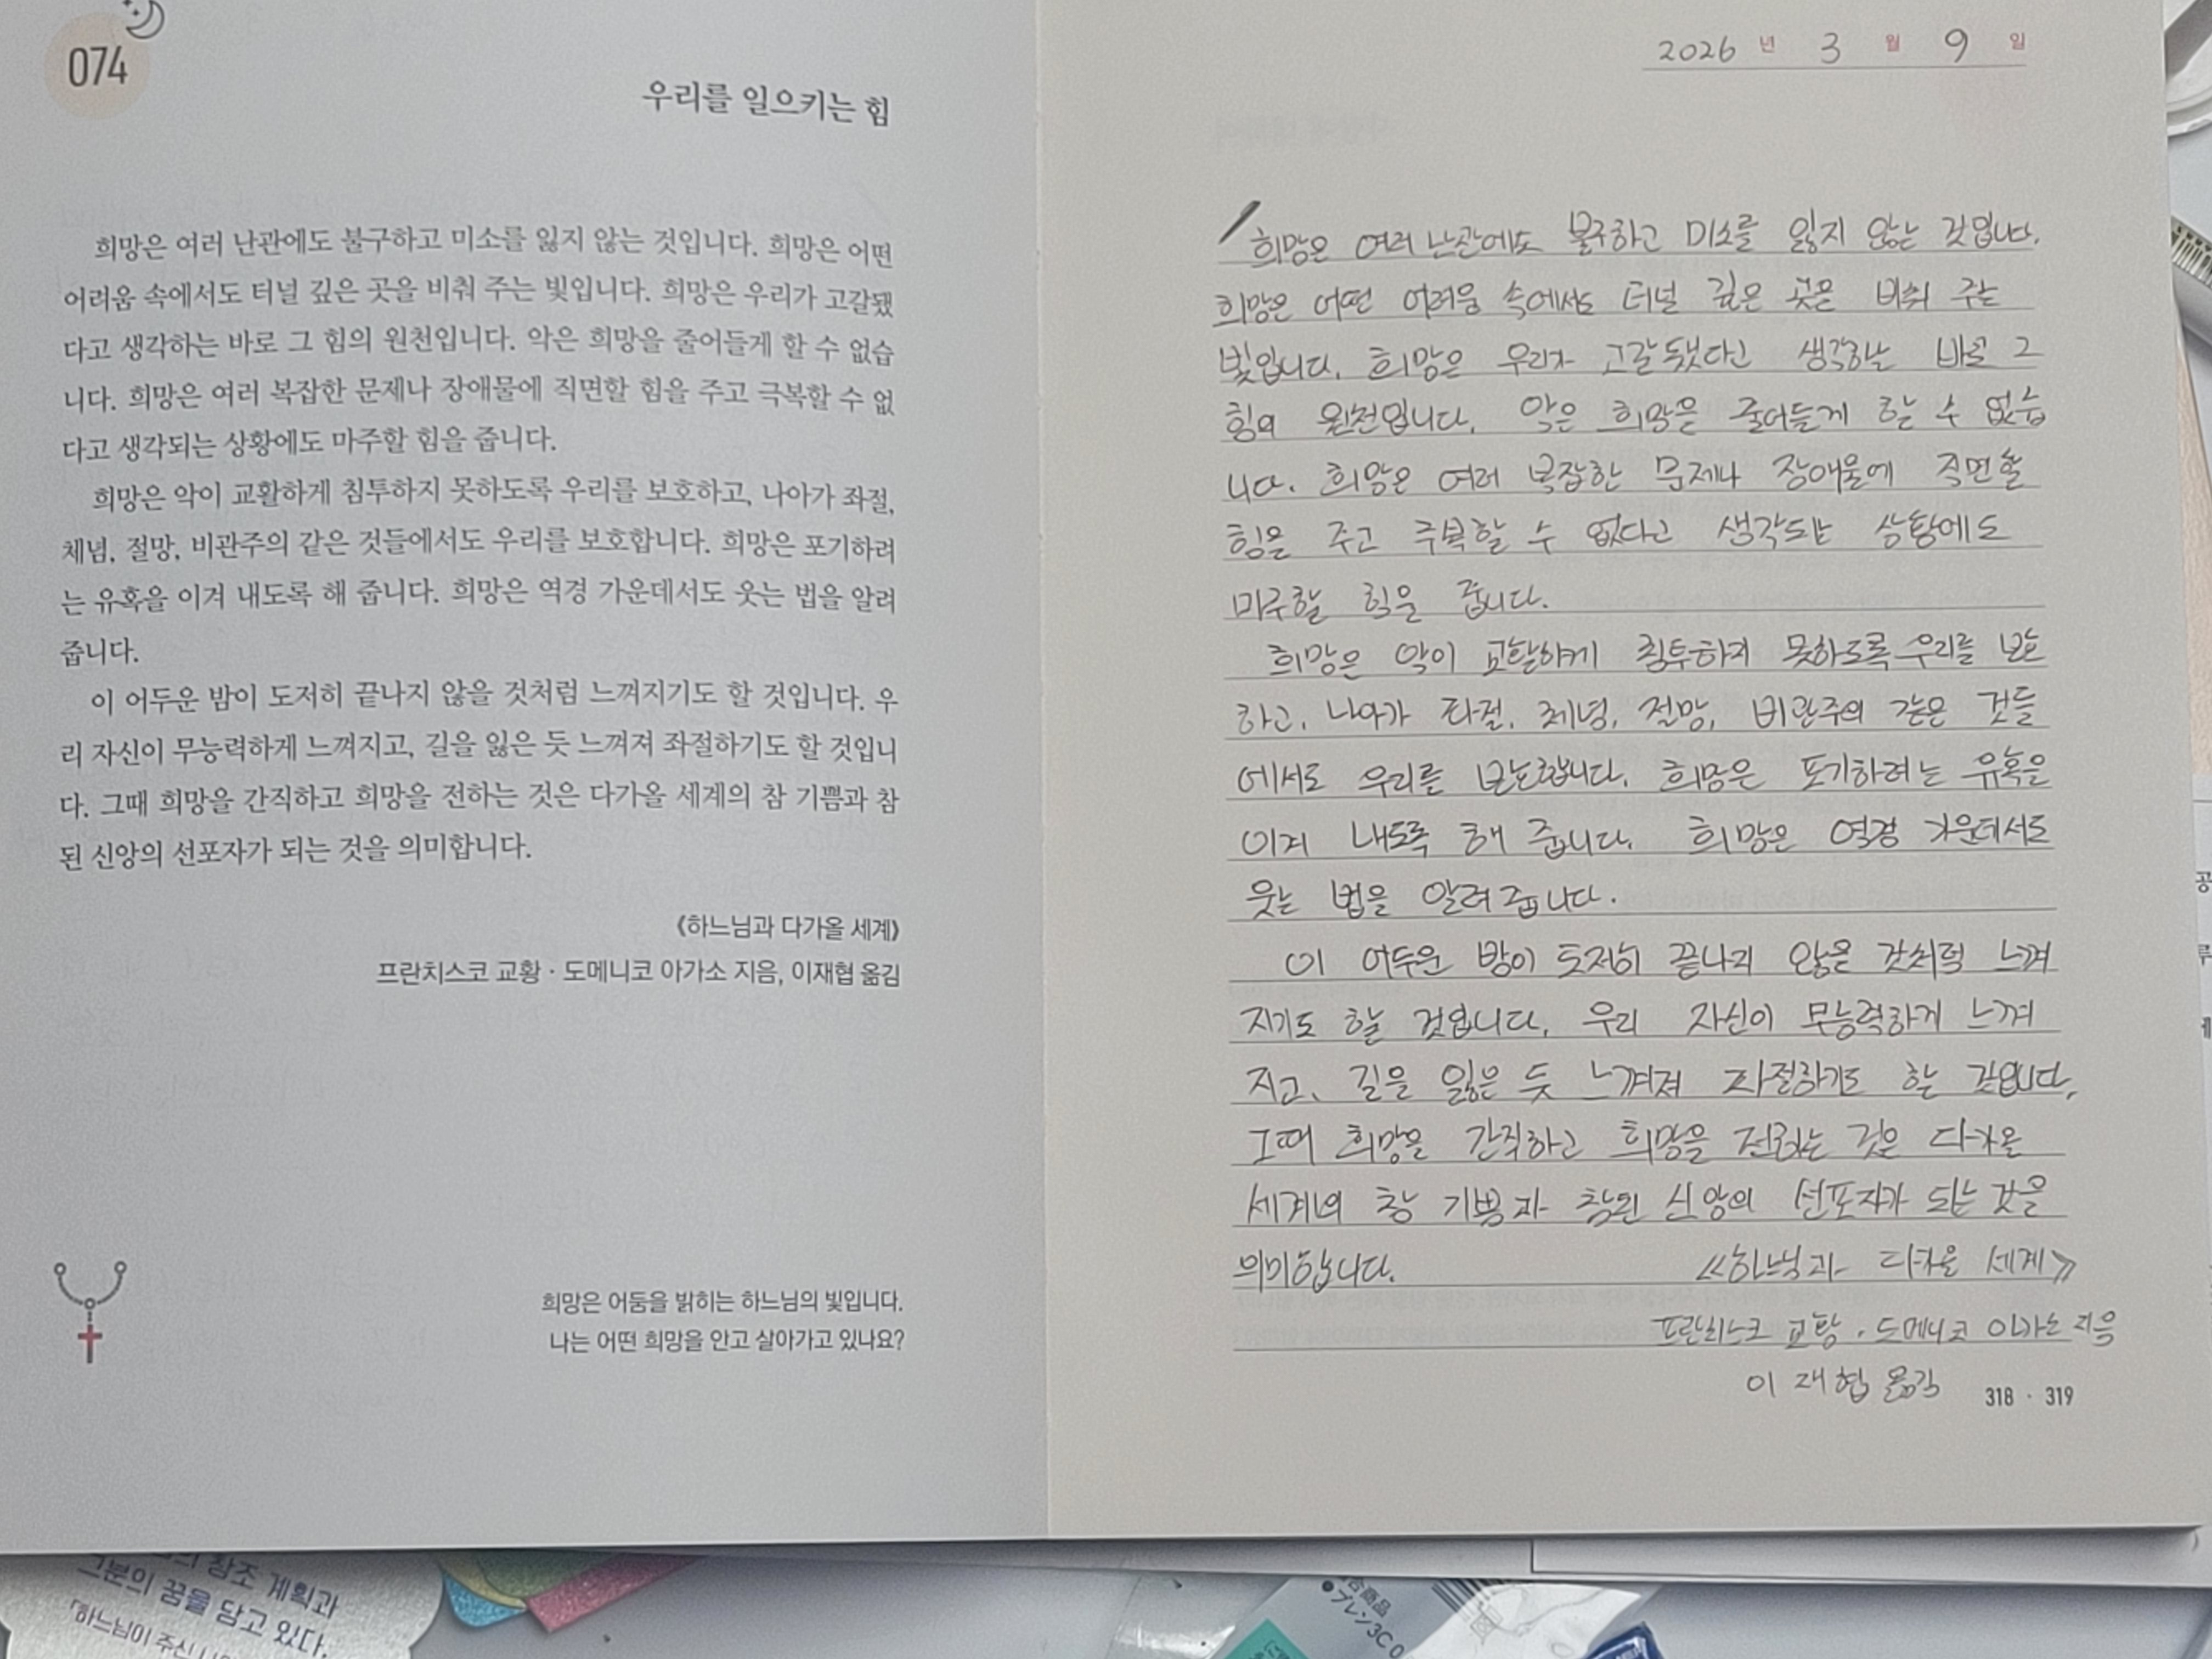 074
우리를 일으키는 힘
희망은 여러 난관에도 불구하고 미소를 잃지 않는 것입니다. 희망은 어떤
어려움 속에서도 터널 깊은 곳을 비춰 주는 빛입니다. 희망은 우리가 고갈됐
다고 생각하는 바로 그 힘의 원천입니다. 악은 희망을 줄어들게 할 수 없습
니다. 희망은 여러 복잡한 문제나 장애물에 직면할 힘을 주고 극복할 수 없
다고 생각되는 상황에도 마주할 힘을 줍니다.
희망은 악이 교활하게 침투하지 못하도록 우리를 보호하고, 나아가 좌절,
체념, 절망, 비관주의 같은 것들에서도 우리를 보호합니다. 희망은 포기하려
는 유혹을 이겨 내도록 해 줍니다. 희망은 역경 가운데서도 웃는 법을 알려
줍니다.
이 어두운 밤이 도저히 끝나지 않을 것처럼 느껴지기도 할 것입니다. 우
리 자신이 무능력하게 느껴지고, 길을 잃은 듯 느껴져 좌절하기도 할 것입니
다. 그때 희망을 간직하고 희망을 전하는 것은 다가올 세계의 참 기쁨과 참
된 신앙의 선포자가 되는 것을 의미합니다.
《하느님과 다가올 세계》
프란치스코 교황 · 도메니코 아가소 지음, 이재협 옮김
희망은 어둠을 밝히는 하느님의 빛입니다.
나는 어떤 희망을 안고 살아가고 있나요?
2026 년 3 월 9 일
희망은 여러 난관에도 불구하고 미소를 잃지 않는 것입니다.
희망은 어떤 어려움 속에서도 터널 깊은 곳을 비춰 주는
빛입니다. 희망은 우리가 고갈됐다고 생각하는 바로 그
힘의 원천입니다. 악은 희망을 줄어들게 할 수 없습
니다. 희망은 여러 복잡한 문제나 장애물에 직면할
힘을 주고 극복할 수 없다고 생각되는 상황에도
마주할 힘을 줍니다.
희망은 악이 교활하게 침투하지 못하도록 우리를 보호
하고, 나아가 좌절, 체념, 절망, 비관주의 같은 것들
에서도 우리를 보호합니다. 희망은 포기하려는 유혹을
이겨 내도록 해 줍니다. 희망은 역경 가운데서도
웃는 법을 알려 줍니다.
이 어두운 밤이 도저히 끝나지 않을 것처럼 느껴
지기도 할 것입니다. 우리 자신이 무능력하게 느껴
지고, 길을 잃은 듯 느껴져 좌절하기도 할 것입니다.
그때 희망을 간직하고 희망을 전하는 것은 다가올
세계의 참 기쁨과 참된 신앙의 선포자가 되는 것을
의미합니다. 《하느님과 다가올 세계》
프란치스코 교황 · 도메니코 아가소 지음
이재협 옮김
318 · 319
창조 계획과
그분의 꿈을 담고 있다.
「하느님이 주신
合商品
●ブレン3C 0